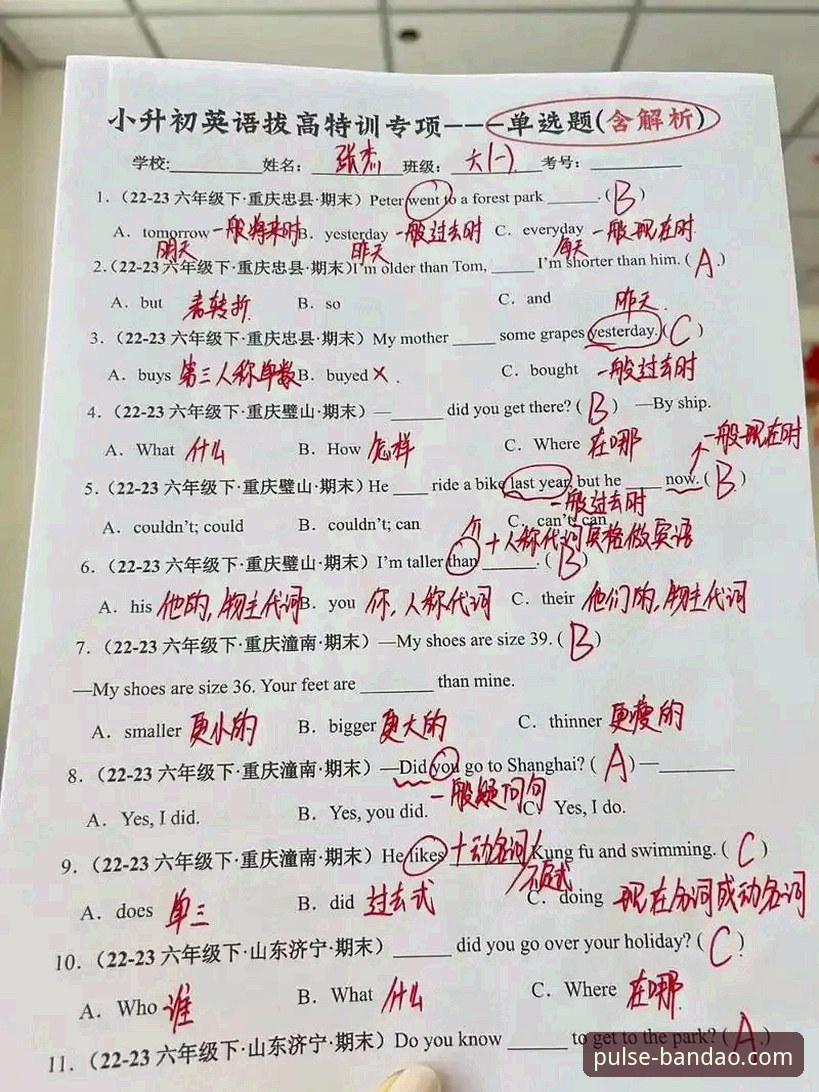 小升初英语拔高特训专项---单选题(含解析)
学校:________姓名: 张杰 班级: 六(一) 考号:________
1.（22-23 六年级下·重庆忠县·期末）Peter went to a forest park _____.( B )
A．tomorrow 一般将来时 B．yesterday 一般过去时 C．everyday 一般现在时
明天 昨天 每天
2.（22-23 六年级下·重庆忠县·期末）I'm older than Tom, _____ I'm shorter than him. ( A )
A．but 表转折 B．so C．and 昨天
3.（22-23 六年级下·重庆忠县·期末）My mother _____ some grapes yesterday.( C )
A．buys 第三人称单数 B．buyed × . C．bought 一般过去时
4.（22-23 六年级下·重庆璧山·期末）—_____ did you get there? ( B ) —By ship.
A．What 什么 B．How 怎样 C．Where 在哪 一般现在时
5.（22-23 六年级下·重庆璧山·期末）He ____ ride a bike last year, but he ____ now. ( B )
一般过去时
A．couldn't; could B．couldn't; can C．can't; can
个 +人称代词宾格做宾语
6.（22-23 六年级下·重庆璧山·期末）I'm taller than ______. ( B )
A．his 他的,物主代词 B．you 你,人称代词 C．their 他们的,物主代词
7.（22-23 六年级下·重庆潼南·期末）—My shoes are size 39. ( B )
—My shoes are size 36. Your feet are ________ than mine.
A．smaller 更小的 B．bigger 更大的 C．thinner 更瘦的
8.（22-23 六年级下·重庆潼南·期末）—Did you go to Shanghai? ( A ) —________
一般疑问句
A．Yes, I did. B．Yes, you did. C．Yes, I do.
9.（22-23 六年级下·重庆潼南·期末）He likes +动名词/ Kung fu and swimming. ( C )
不定式
A．does 单三 B．did 过去式 C．doing 现在分词或动名词
10.（22-23 六年级下·山东济宁·期末）______ did you go over your holiday? ( C )
A．Who 谁 B．What 什么 C．Where 在哪
11.（22-23 六年级下·山东济宁·期末）Do you know ______ to get to the park? ( A )
pulse-bandao.com